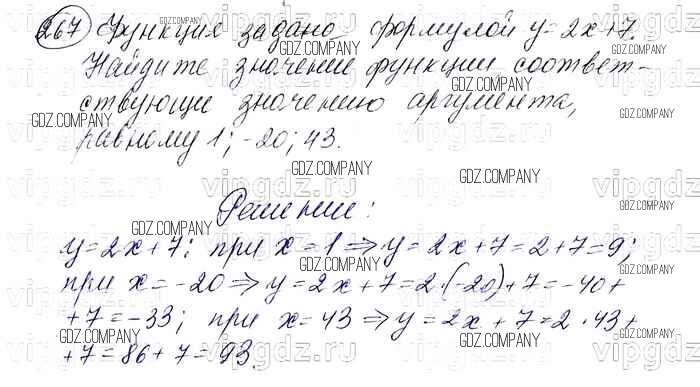 267 Функция задано формулой y = 2x+7.
Найдите значение функции, соответ-
ствующи значению аргумента,
равному 1; -20; 43.
Решение:
y = 2x + 7: при x = 1 ⇒ y = 2x + 7 = 2 + 7 = 9;
при x = -20 ⇒ y = 2x + 7 = 2·(-20) + 7 = -40 +
+7 = -33; при x = 43 ⇒ y = 2x + 7 = 2·43 +
+7 = 86 + 7 = 93.